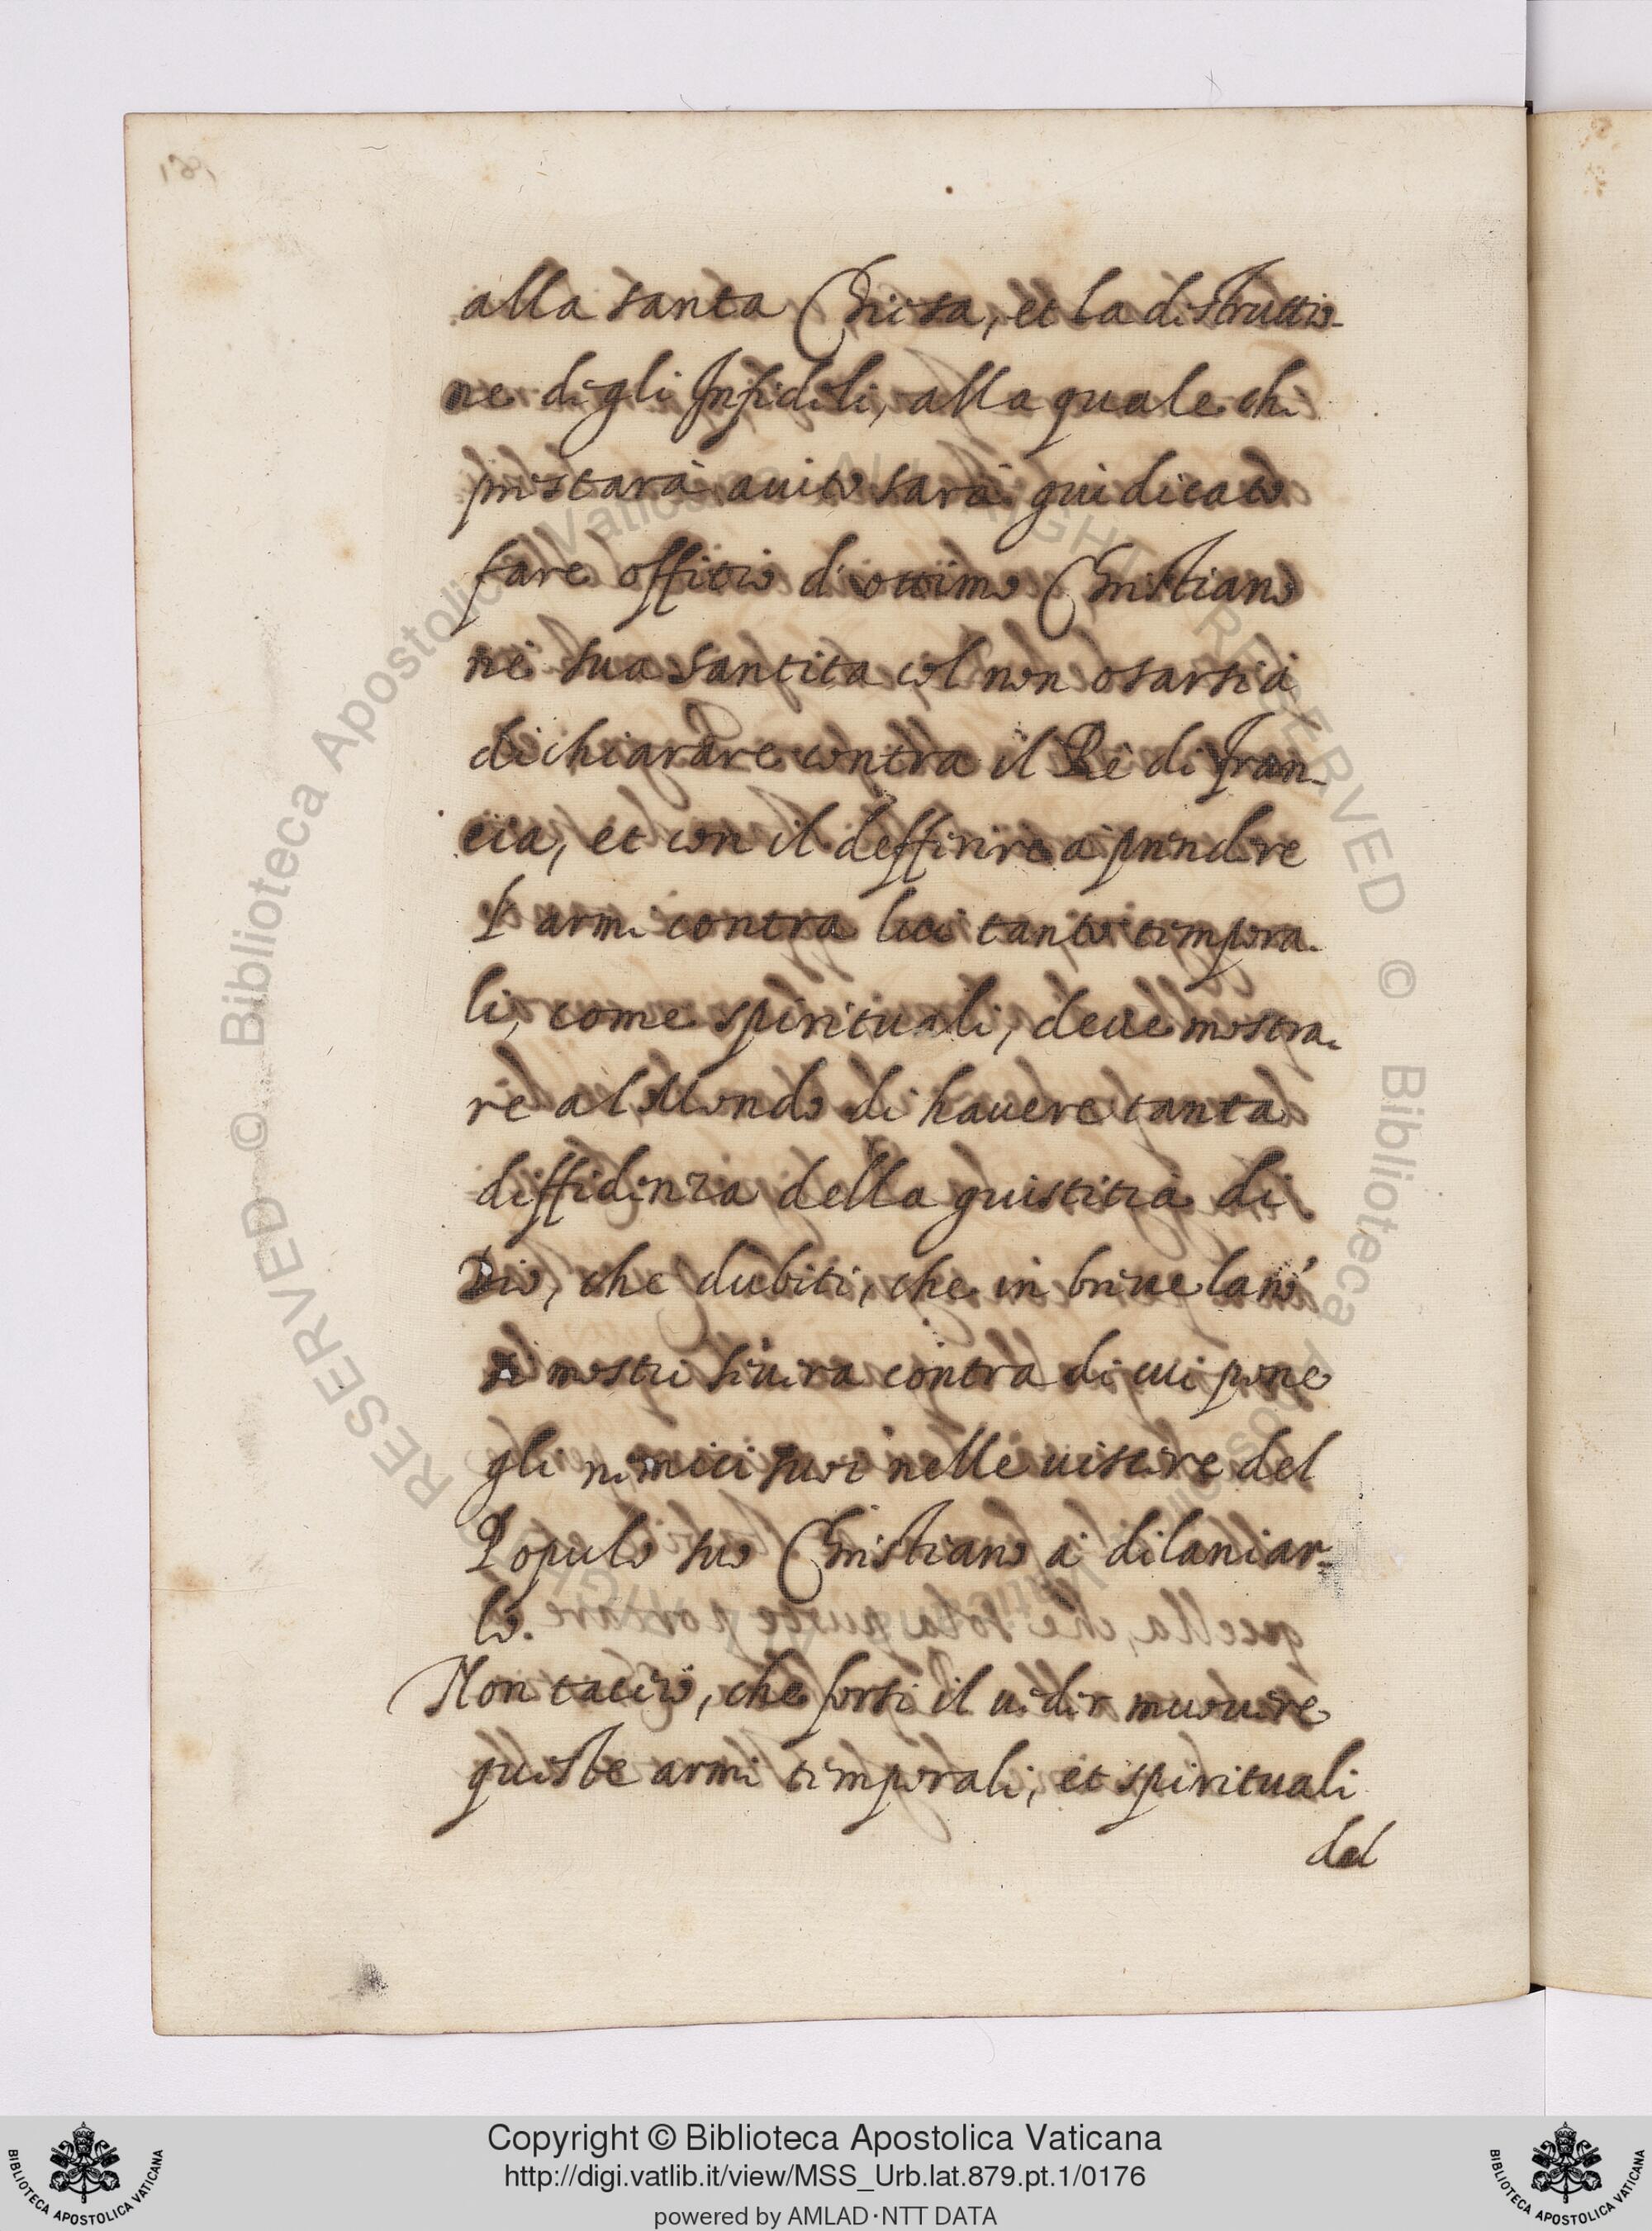 alla santa Chiesa, et la distruttio-
ne degli Infideli, alla quale chi
prestarà aiuto sarà giudicato
fare offitio di ottimo Christiano
nè sua santità col non osarsi à
dichiarare contra il Rè di Fran-
cia, et con il defferire à prendere
l'armi contra lui tanto tempora-
li, come spirituali, deve mostra-
re al Mondo di havere tanta
diffidenza della giustitia di
Dio, che dubiti, che in breve la nò
si mostri severa contra di cui pone
gli nemici suoi nelle viscere del
Popolo suo Christiano à dilaniar-
lo.
Non tacerò, che forsi il veder muovere
queste armi temporali, et spirituali
del
RESERVED © Biblioteca Apostolica Vaticana, ALL RIGHTS RESERVED © Biblioteca Apostolica Vaticana
Copyright © Biblioteca Apostolica Vaticana
http://digi.vatlib.it/view/MSS_Urb.lat.879.pt.1/0176
powered by AMLAD·NTT DATA
BIBLIOTECA APOSTOLICA VATICANA
BIBLIOTECA APOSTOLICA VATICANA